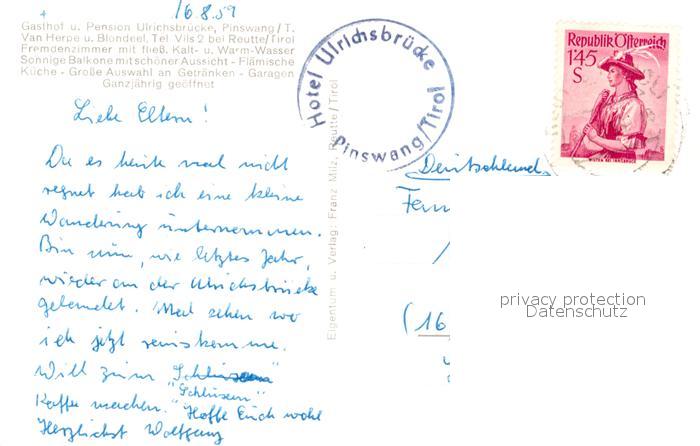 16.8.59
Gasthof u. Pension Ulrichsbrücke, Pinswang / T.
Van Herpe u. Blondeel, Tel. Vils 2 bei Reutte/Tirol
Fremdenzimmer mit fließ. Kalt- u. Warm-Wasser
Sonnige Balkone mit schöner Aussicht - Flämische
Küche - Große Auswahl an Getränken - Garagen
Ganzjährig geöffnet
Liebe Eltern!
Da es heute mal nicht
regnet hab ich eine kleine
Wanderung unternommen.
Bin nun, wie letztes Jahr,
wieder an der Ulrichsbrücke
gelandet. Mal sehen wo
ich jetzt rauskomme.
Will zum
"Schlüxen"
Kaffee machen. Hoffe Euch wohl
Herzlichst Wolfgang
Eigentum u. Verlag: Franz Milz, Reutte/Tirol
Hotel Ulrichsbrücke
Pinswang/Tirol
Republik Österreich
1'45
S
WILTEN BEI INNSBRUCK
Deutschland
Fam
(16
privacy protection
Datenschutz